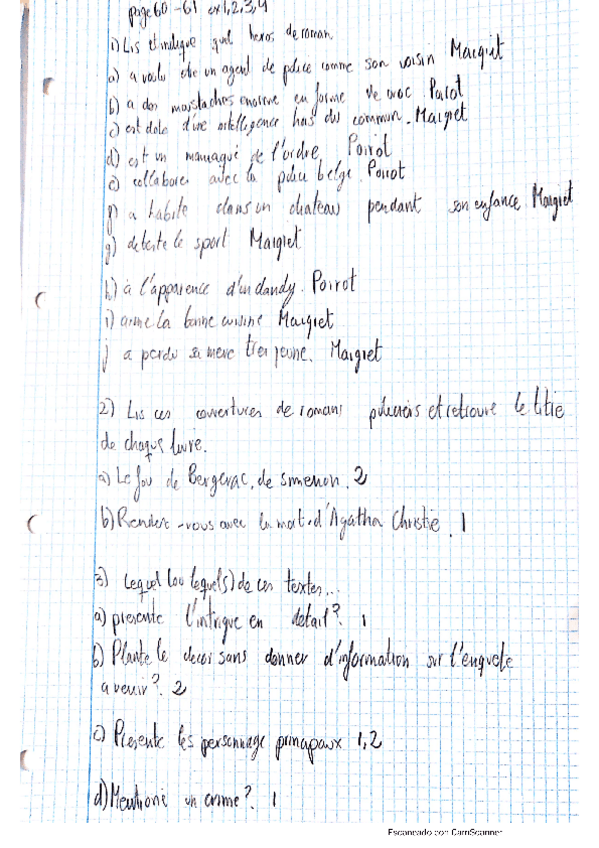 page 60 - 61 ex 1,2,3,4
1) Lis et indique quel heros de roman
a) a voulu etre un agent de police comme son voisin Maigret
b) a des moustaches enorme en forme de croc Poirot
c) est dote d'une intelligence hors du commun. Maigret
d) est un maniaque de l'ordre Poirot
e) collabore avec la police belge. Poirot
f) a habite dans un chateau pendant son enfance Maigret
g) deteste le sport Maigret
h) à l'apparence d'un dandy. Poirot
i) aime la bonne cuisine Maigret
j) a perdu sa mere tres jeune. Maigret
2) Lis ces couvertures de romans policiers et retrouve le titre
de chaque livre.
a) Le fou de Bergerac, de simenon. 2
b) Rendez-vous avec la mort d'Agatha Christie. 1
3) Lequel (ou lequel(s) de ces textes...
a) presente l'intrigue en detail? 1
b) Plante le decor sans donner d'information sur l'enquete
a venir? 2
c) Presente les personnage principaux 1,2
d) Mentione un crime? 1
Escaneado con CamScanner